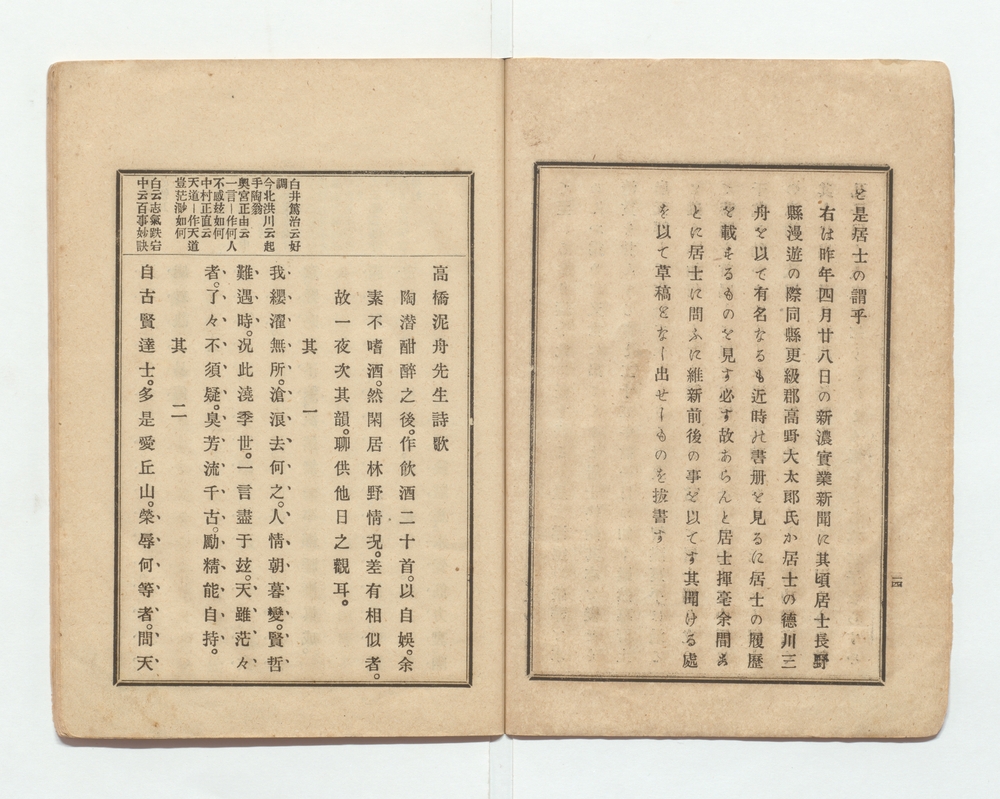 と是居士の謂乎
右は昨年四月廿八日の新濃實業新聞に其頃居士長野
縣漫遊の際同縣更級郡高野大太郎氏か居士の德川三
舟を以て有名なるも近時の書册を見るに居士の履歴
を載するものを見す必す故あらんと居士揮毫余間あ
とに居士に問ふに維新前後の事を以てす其聞ける處
を以て草稿となし出せしものを抜書す
一四
高橋泥舟先生詩歌
陶潜酣醉之後。作飲酒二十首。以自娯。余
素不嗜酒。然閑居林野情况。差有相似者。
故一夜次其韻。聊供他日之觀耳。
其一
我纓濯無所。滄浪去何之。人情朝暮變。賢哲
難遇時。况此澆季世。一言盡于玆。天雖茫々
者。了々不須疑。臭芳流千古。勵精能自持。
其二
自古賢達士。多是愛丘山。榮辱何等者。問天
白井篤治云好
調
今北洪川云起
手陶翁
奥宮正由云
一言一作何人
不感玆如何
中村正直云
天道一作天道
豈茫渺如何
白云志氣鉄宕
中云百事妙訣